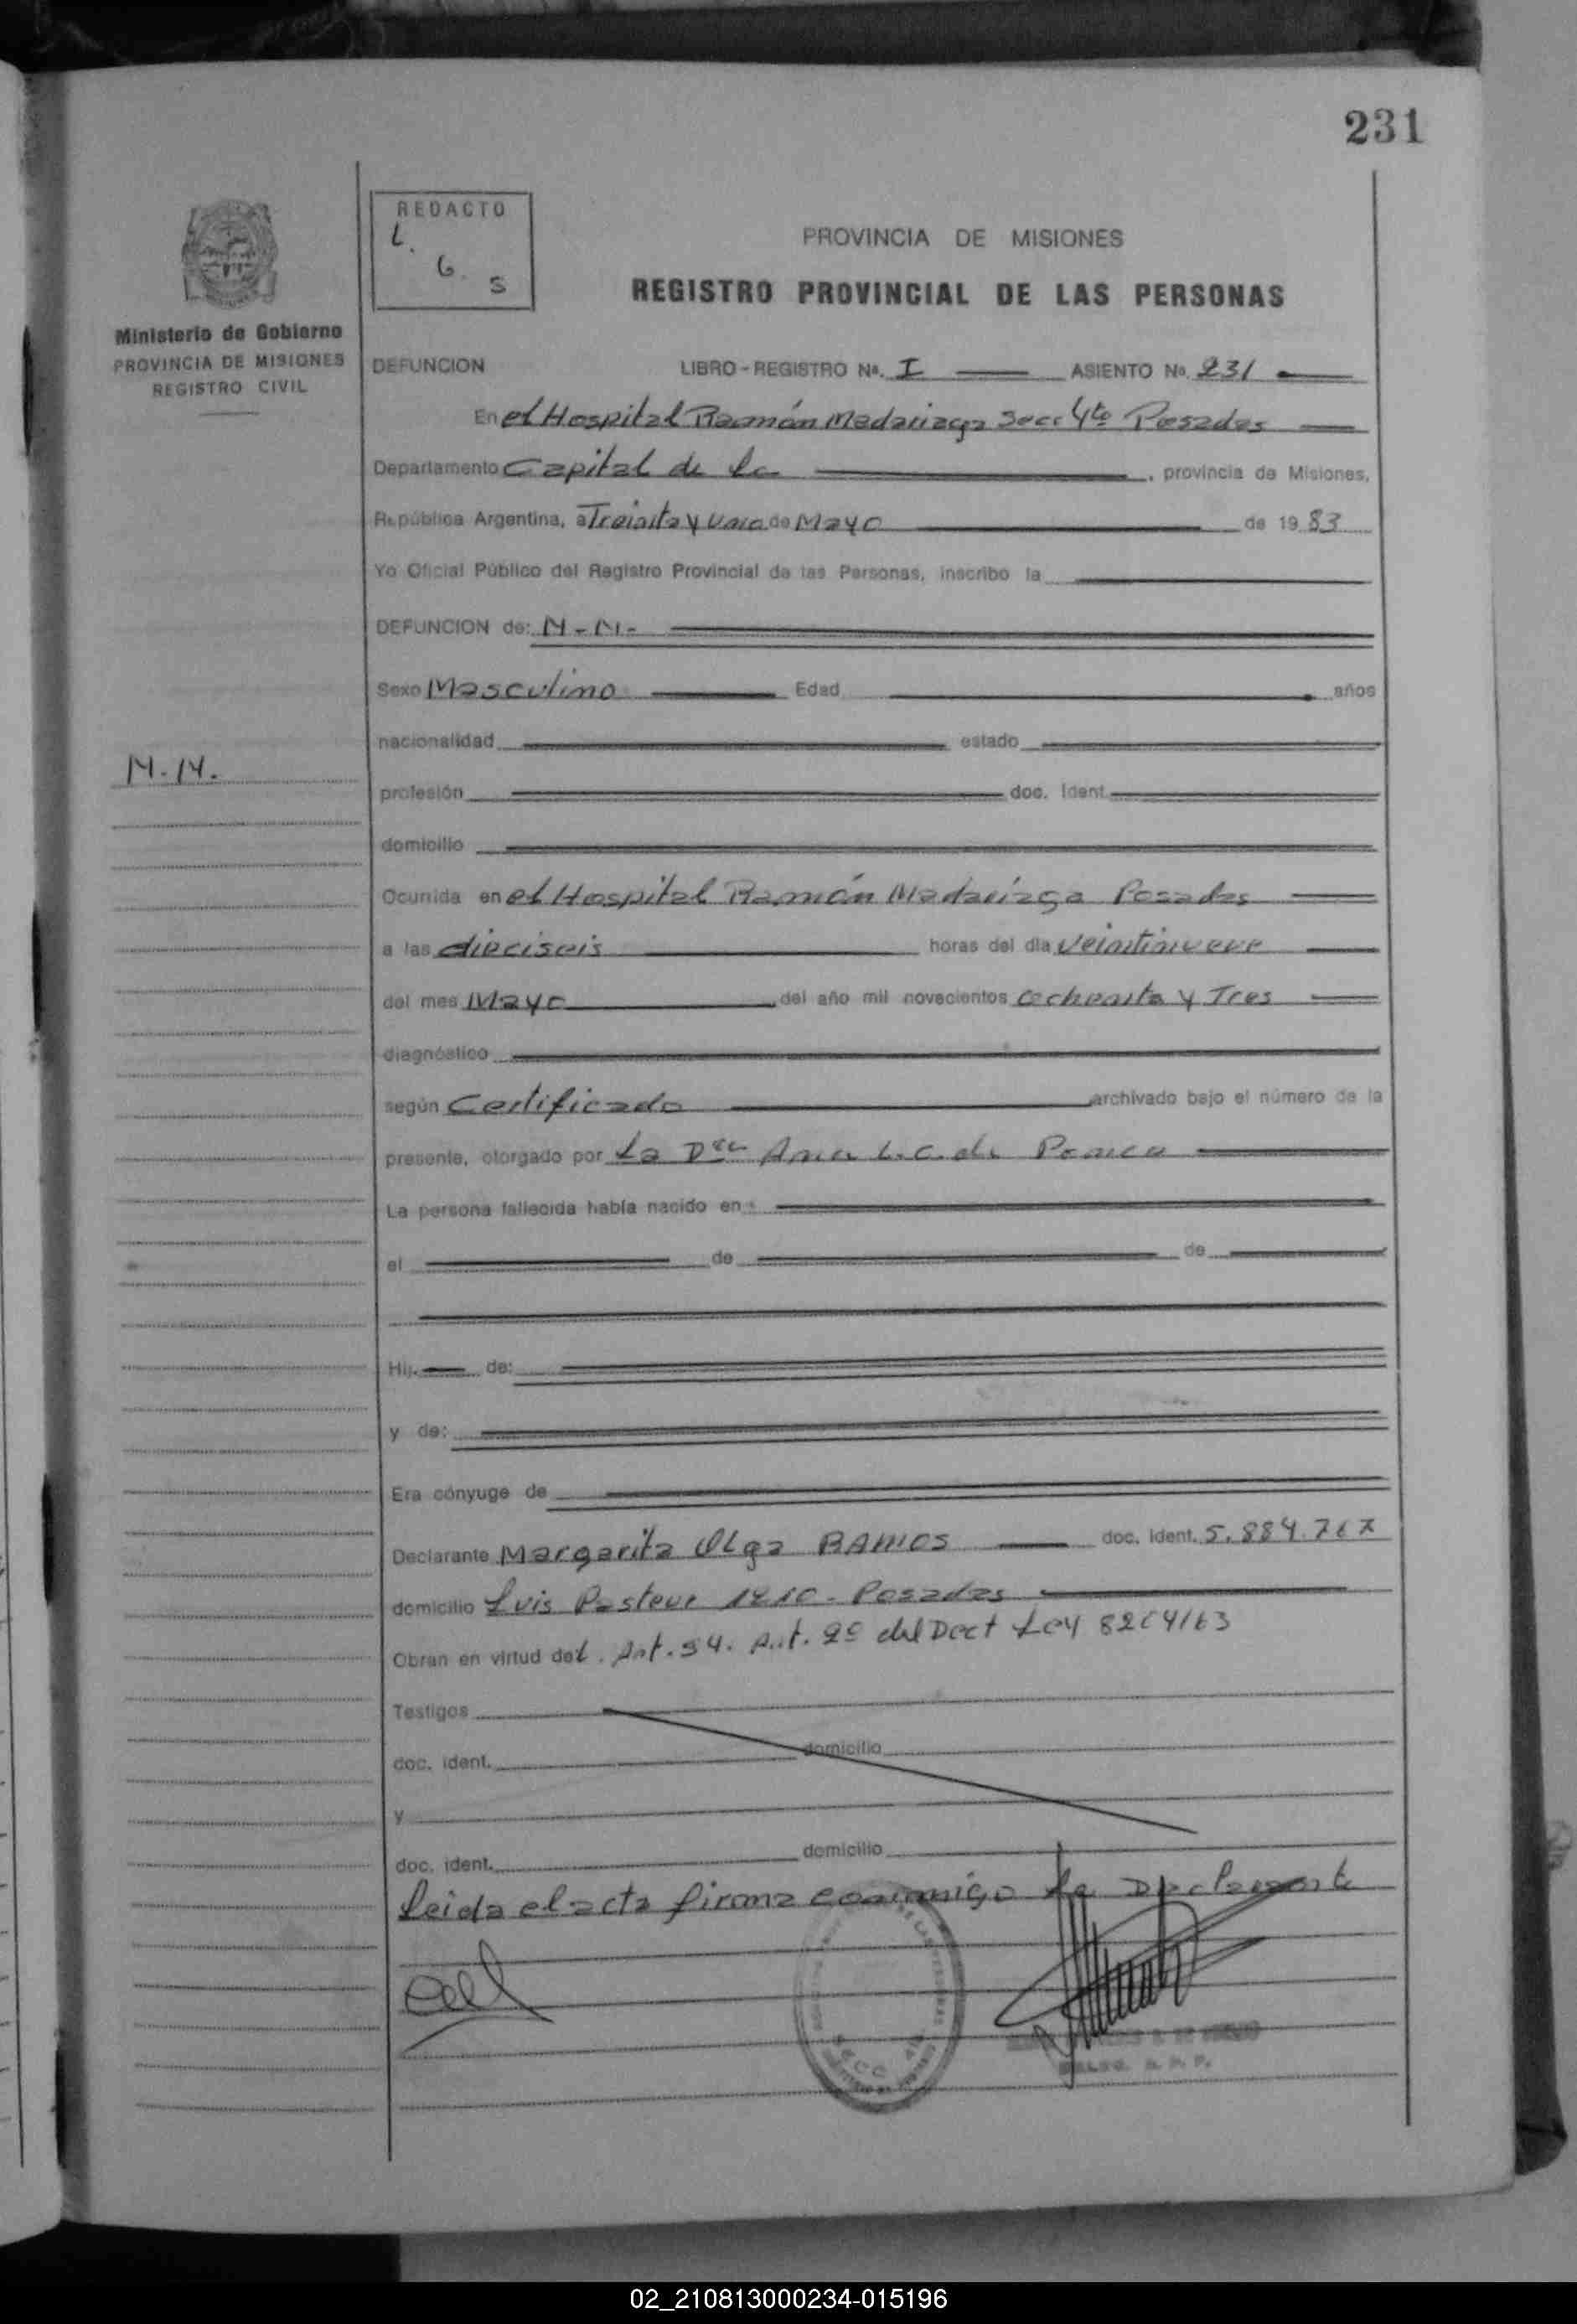 231
REDACTO
L.
G.
S
PROVINCIA DE MISIONES
REGISTRO PROVINCIAL DE LAS PERSONAS
Ministerio de Gobierno
PROVINCIA DE MISIONES
REGISTRO CIVIL
DEFUNCION LIBRO - REGISTRO Nº. I ASIENTO Nº. 231
En el Hospital Ramón Madariaga Secc 4to Posadas
Departamento Capital de la , provincia de Misiones,
República Argentina, a Treinta y uno de Mayo de 19 83
Yo Oficial Público del Registro Provincial de las Personas, inscribo la
DEFUNCION de: N-N-
Sexo Masculino Edad años
nacionalidad estado
N.N.
profesión doc. Ident.
domicilio
Ocurrida en el Hospital Ramón Madariaga Posadas
a las dieciseis horas del día veintinueve
del mes Mayo del año mil novecientos ochenta y Tres
diagnóstico
según Certificado archivado bajo el número de la
presente, otorgado por La Dra Ana L.C. de
La persona fallecida había nacido en
el de de
Hij. de:
y de:
Era cónyuge de
Declarante Margarita Olga RAMOS doc. ident. 5.884.767
domicilio Luis Pasteur 1210 - Posadas
Obran en virtud del. Art. 54. Art. 2º del Dect Ley 8204/63
Testigos
doc. ident. domicilio
y
doc. ident. domicilio
Leida el acta firma conmigo la Declarante
SECC. 4ta
02_210813000234-015196